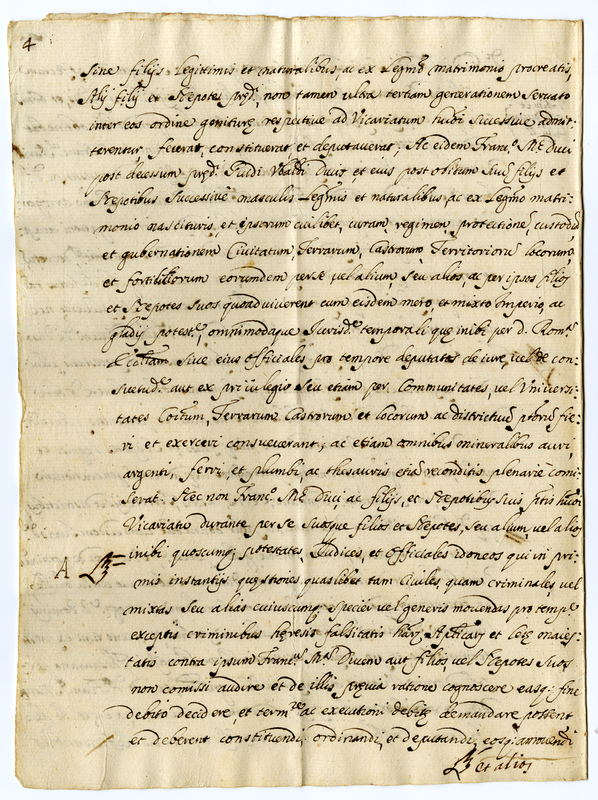 4
sine filijs legittimis et naturalibus, ac ex Legmo matrimonio procreatis,
Alij filij et Nepotes predi, non tamen ultra tertiam generationem servato
inter eos ordine geniture respective ad Vicariatum huiusmodi successive admit-
terentur, fecerat, constituerat et deputaverat; Ac eidem Franco Me Duci
post decessum predi Guidi Vbaldi Ducis, et eius post obitum suis filijs et
Nepotibus Successive masculis Legmis et naturalibus ac ex Legmo matri-
monio nascituris, et ipsorum cuilibet, curam, regimen, protectione, custodia
et gubernationem Civitatum, Terrarum, Castrorum, Territorioru locorum
et fortilitiorum eorumdem per se vel alium, seu alios, ac per ipsos filios
et Nepotes suos quoad viverent cum eisdem mero et mixto Imperio, ac
gladij poteste, omnimodaque Jurisde temporali que inibi per d. Rom.
Ecclam sive eius officiales pro tempore deputatos de iure, vel de con-
suetude aut ex privilegio seu etiam per Communitates, vel Universi-
tates Civitum, Terrarum Castrorum et locorum ac districtuu fie-
ri et exerceri consueverant; ac etiam omnibus mineralibus auri,
argenti, ferri, et plumbi, ac thesauris etia reconditis plenarie comi-
serat. Nec non Franco Me Duci, ac filijs, et Nepotibus suis
Vicariatu durante per se suosque filios et Nepotes, seu alium, vel alios
inibi quoscumq; potestates, Judices, et officiales idoneos qui in pri-
A
mis instantijs questiones quaslibet tam civiles, quam criminales, vel
mixtas seu alias cuiuscumq; speciei vel generis movendas pro tempe
exceptis criminibus heresis falsitatis Aplicar, et lese maies-
tatis contra ipsum Francm Mam Ducem aut filios, vel Nepotes suos
non comissi audire et de illis previa ratione cognoscere easq; fine
debito decidere, et termre ac executioni debite demandare possent
et deberent constituendi, ordinandi, et deputandi, eosq; amovendi
et alios